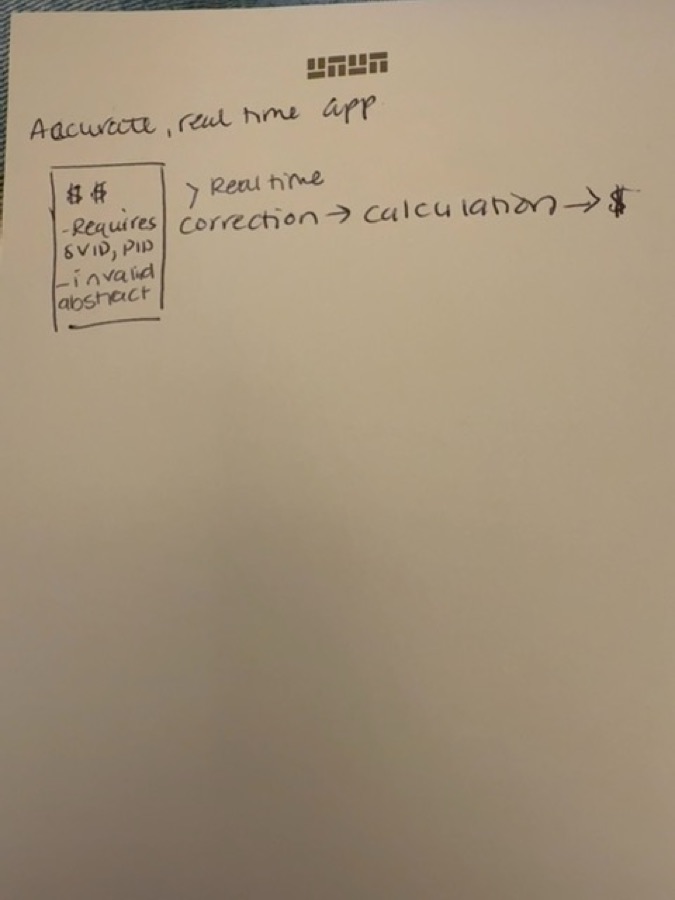 Aacurate, real time app
$ $
-Requires
SVID, PID
-invalid
abstract
> Real time
correction → calculation → $